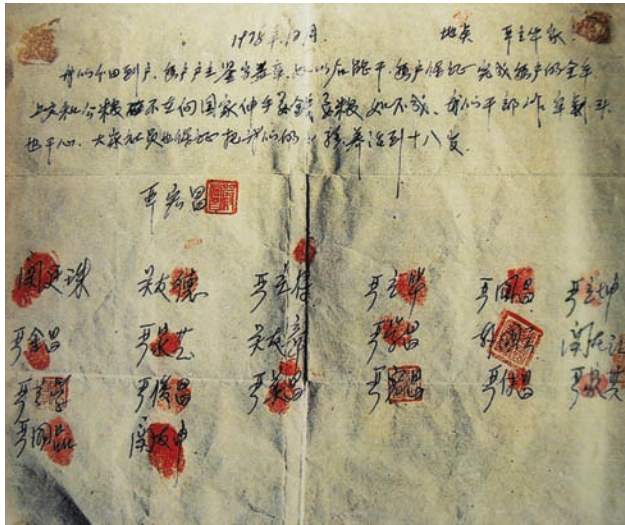 1978年12月. 地点 严立华家
我们分田到户,每户户主签字盖章,如以后能干,每户保证完成每户的全年
上交和公粮 不在向国家伸手要钱要粮 如不成,我们干部作牢剎头
也干心,大家社员也保证把我们的小孩养活到十八岁.
严宏昌
关廷珠 关友德 严立符 严立华 严国昌 严立坤
严金昌 严家芝 关友章 严学昌 韩国云 关友江
严立学 严俊昌 严美昌 严宏昌 严付昌 严家其
严国品 关友申